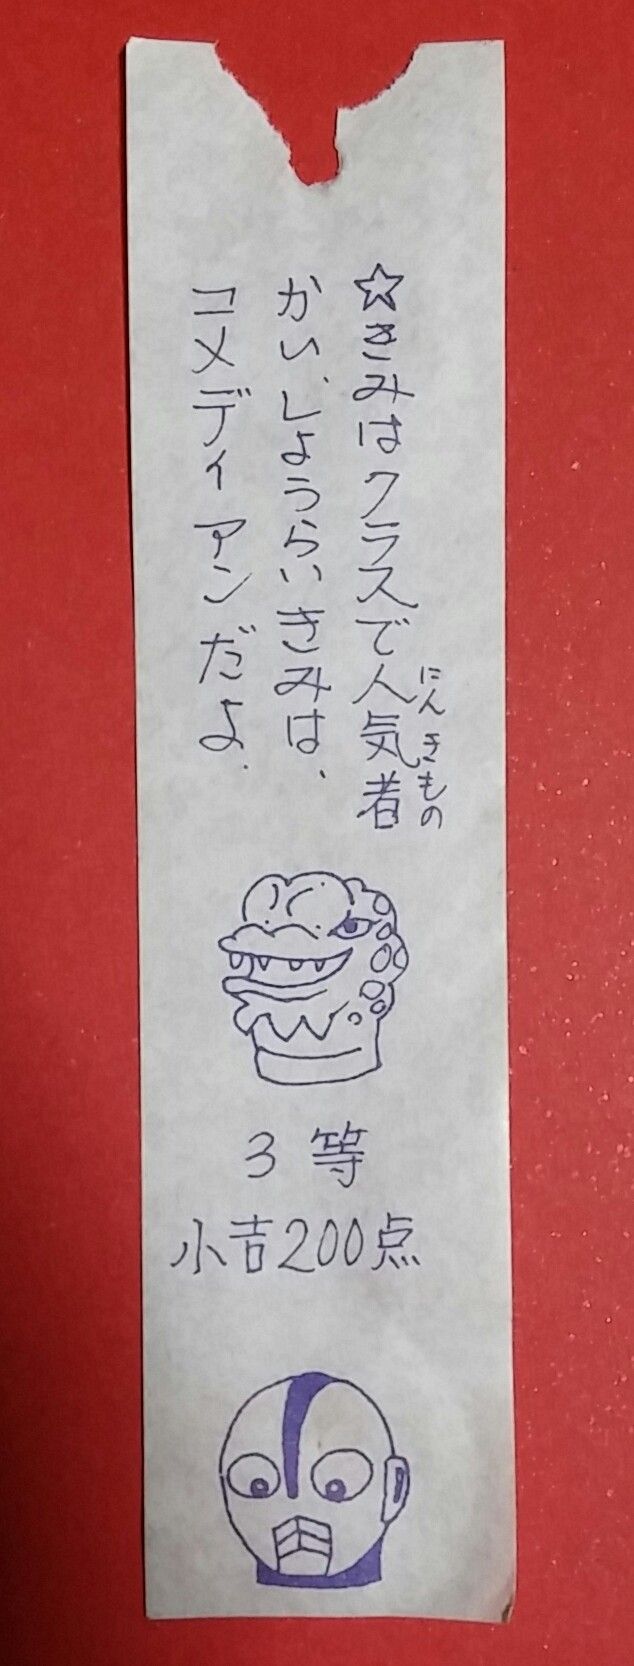 ☆きみはクラスで人気者
にんきもの
かい、しょうらいきみは、
コメディアンだよ.
3等
小吉200点